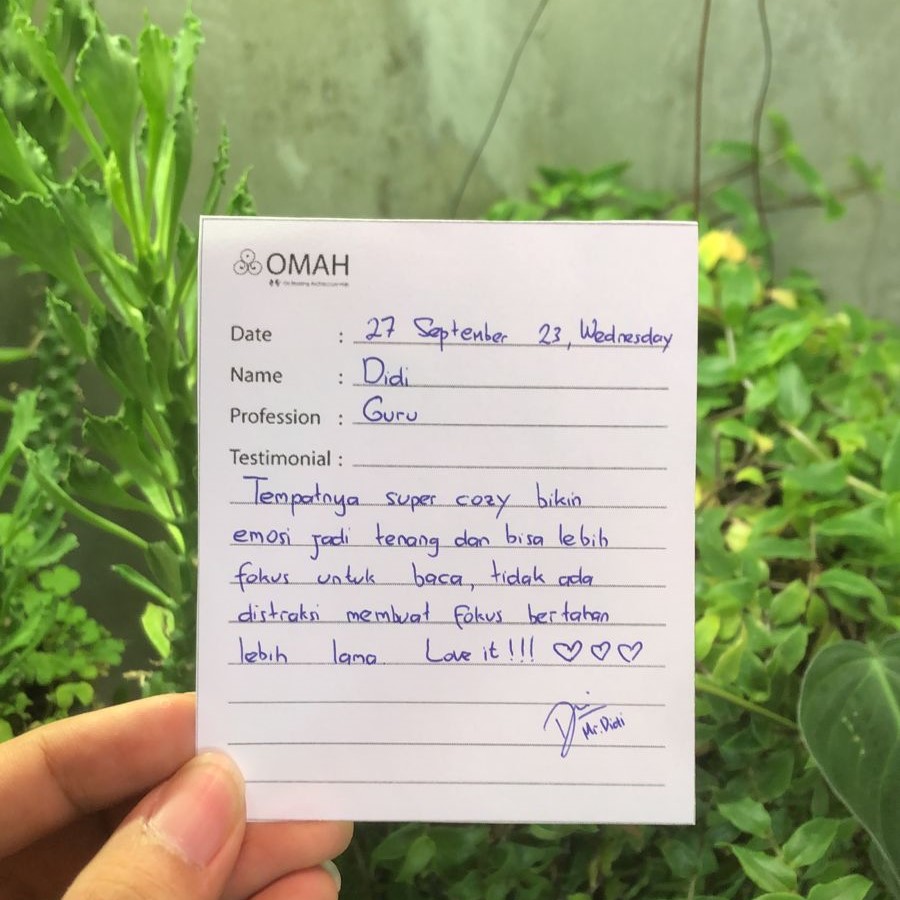 OMAH
Date : 27 September 23, Wednesday
Name : Didi
Profession : Guru
Testimonial :
Tempatnya super cozy bikin
emosi jadi tenang dan bisa lebih
fokus untuk baca, tidak ada
distraksi membuat fokus bertahan
lebih lama. Love it!!! ♡♡♡
Mr. Didi